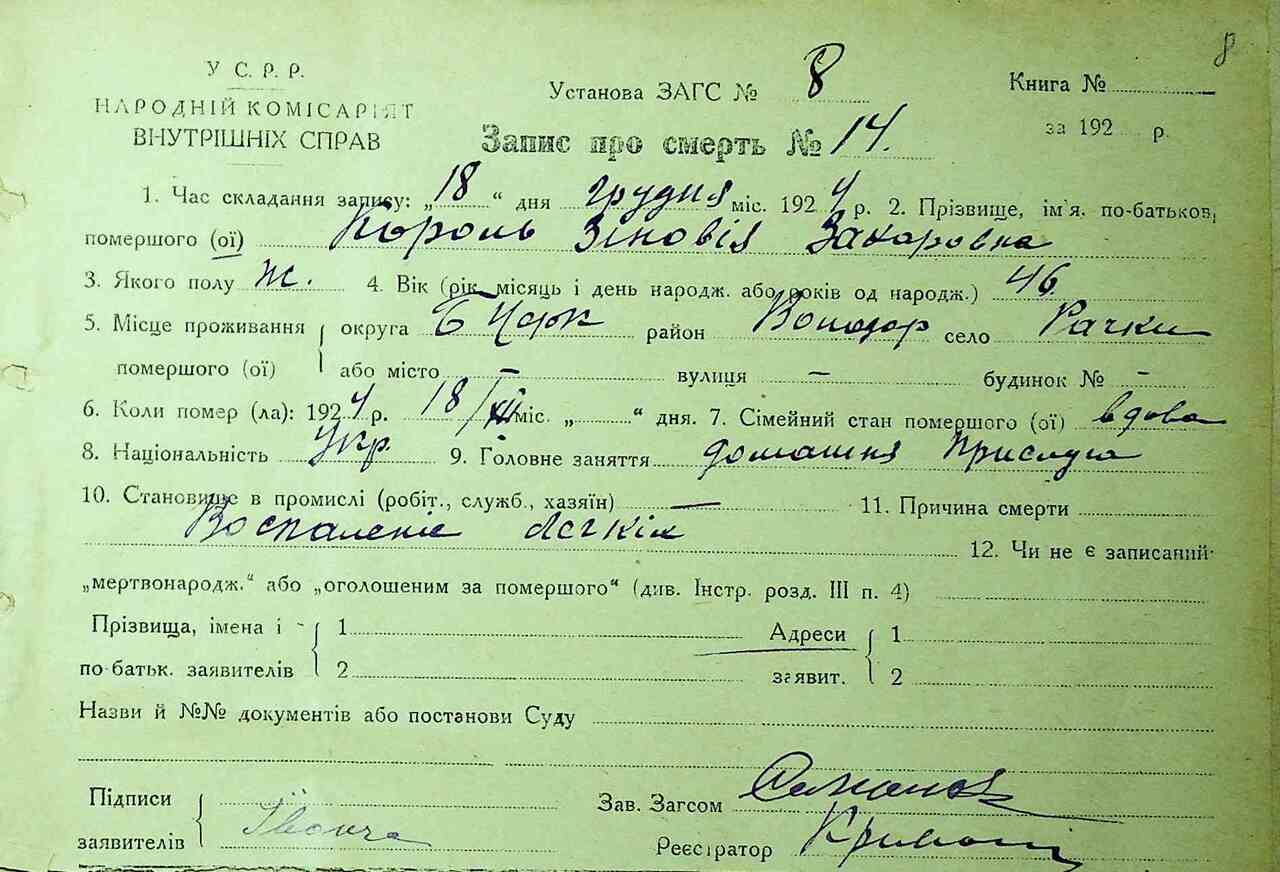 8
У С. Р. Р.
НАРОДНІЙ КОМІСАРІЯТ
ВНУТРІШНІХ СПРАВ
Установа ЗАГС № 8
Книга №
за 192 р.
Запис про смерть № 14.
1. Час складання запису: „18“ дня грудня міс. 1924 р. 2. Прізвище, ім'я. по-батьков,
помершого (ої) Король Зіновія Захаровна
3. Якого полу Ж. 4. Вік (рік, місяць і день народж. або років од народж.) 46
5. Місце проживання округа Б Церк район Володар село Рачки
помершого (ої) або місто — вулиця — будинок № —
6. Коли помер (ла): 1924 р. 18/XII міс. „ “ дня. 7. Сімейний стан помершого (ої) вдова
8. Національність Укр. 9. Головне заняття домашня прислуга
10. Становище в промислі (робіт., служб., хазяїн) — 11. Причина смерти
Воспаленіе легкіх
12. Чи не є записаний
„мертвонародж.“ або „оголошеним за помершого“ (див. Інстр. розд. III п. 4)
Прізвища, імена і 1 Адреси 1
по-батьк. заявителів 2 заявит. 2
Назви й №№ документів або постанови Суду
Підписи Зав. Загсом
заявителів Реєстратор